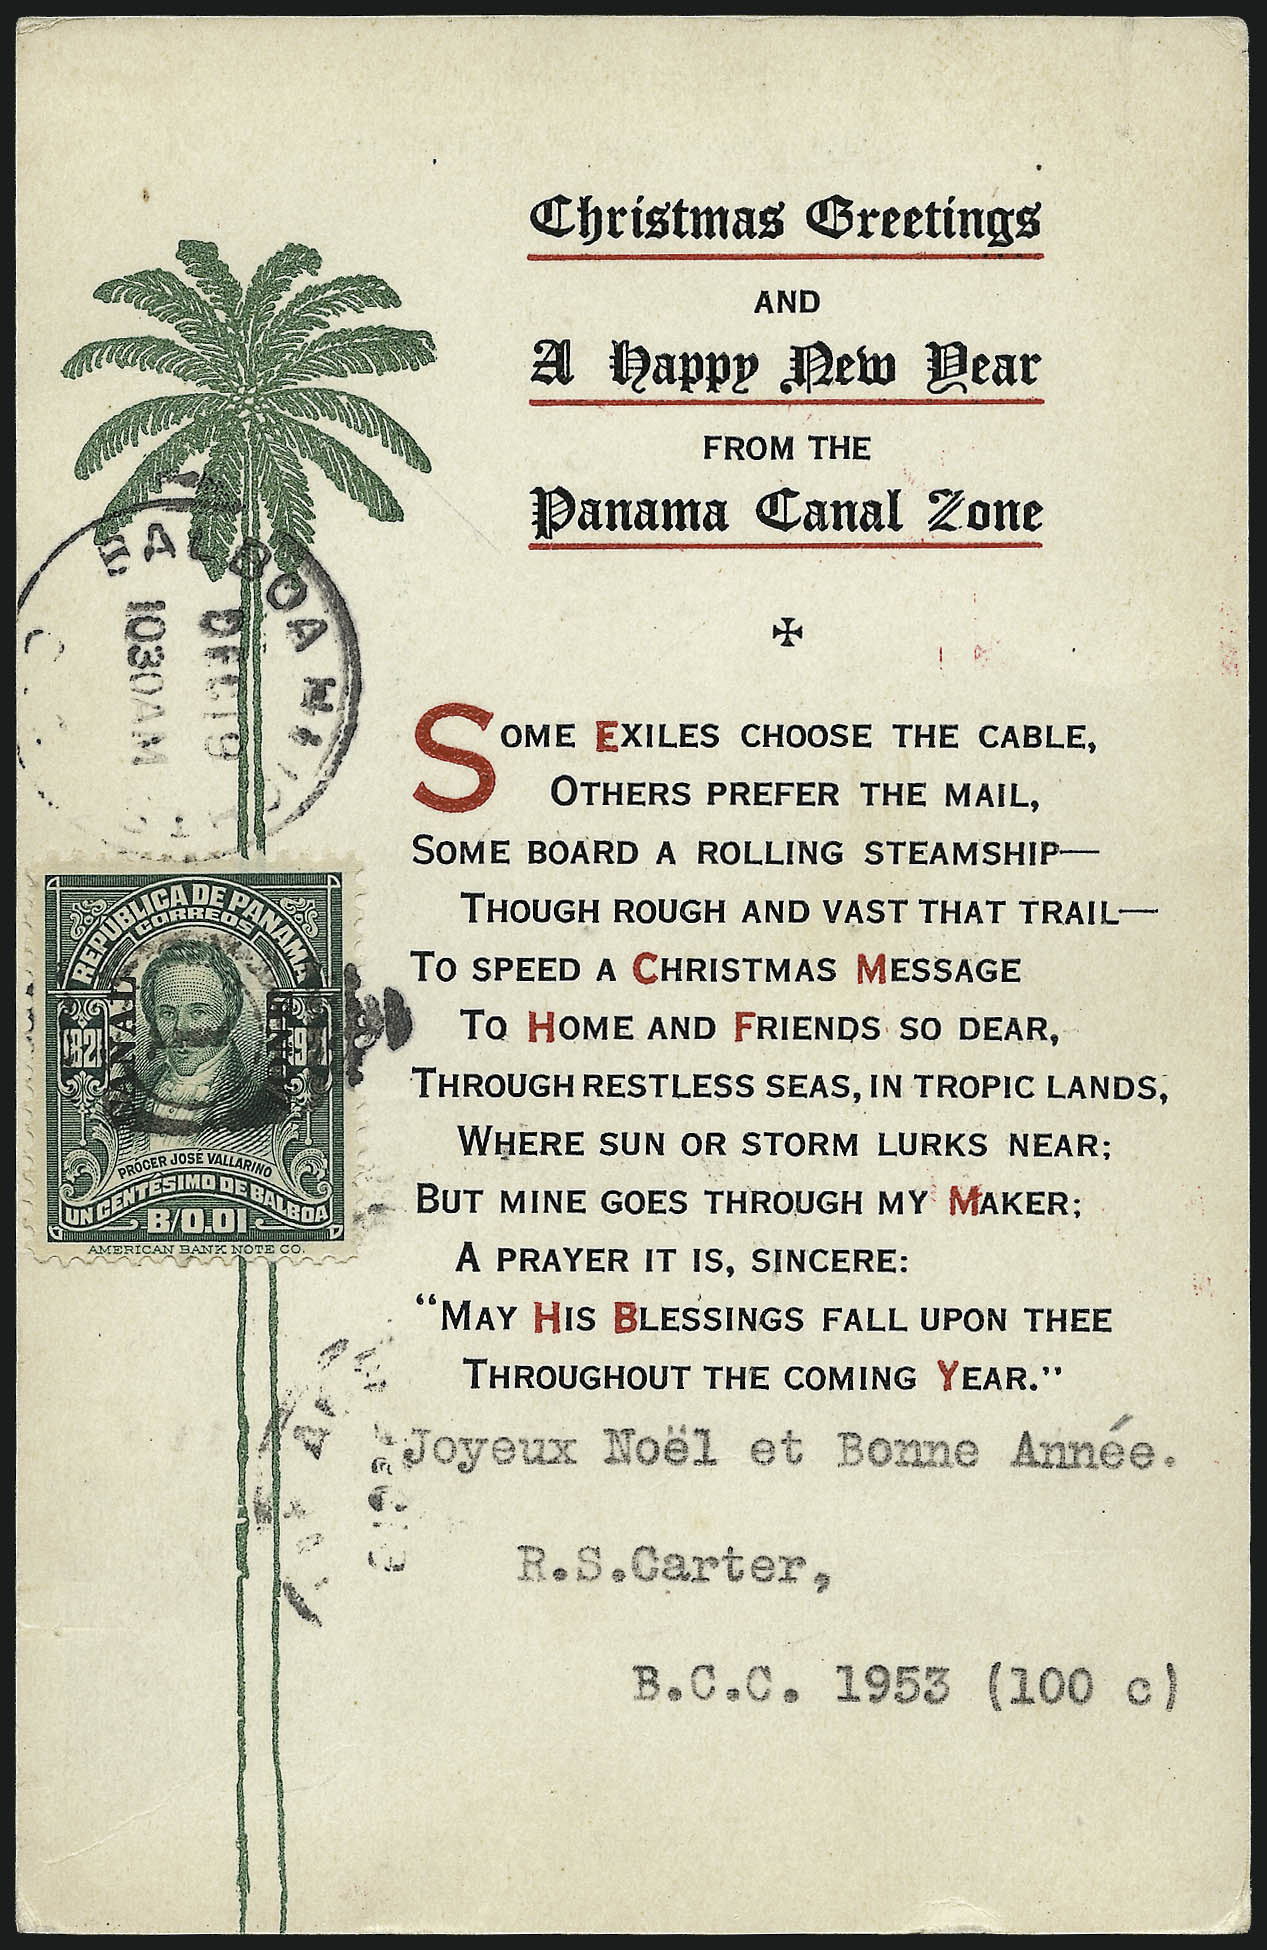 Christmas Greetings
AND
A Happy New Year
FROM THE
Panama Canal Zone
SOME EXILES CHOOSE THE CABLE,
OTHERS PREFER THE MAIL,
SOME BOARD A ROLLING STEAMSHIP—
THOUGH ROUGH AND VAST THAT TRAIL—
TO SPEED A CHRISTMAS MESSAGE
TO HOME AND FRIENDS SO DEAR,
THROUGH RESTLESS SEAS, IN TROPIC LANDS,
WHERE SUN OR STORM LURKS NEAR;
BUT MINE GOES THROUGH MY MAKER;
A PRAYER IT IS, SINCERE:
“MAY HIS BLESSINGS FALL UPON THEE
THROUGHOUT THE COMING YEAR.”
Joyeux Noël et Bonne Année.
R.S.Carter,
B.C.C. 1953 (100 c)
BALBOA HEIGHTS
DEC 19
1030AM
REPÚBLICA DE PANAMA
CORREOS
1821 1921
CANAL ZONE
PROCER JOSÉ VALLARINO
UN CENTÉSIMO DE BALBOA
B/0.01
AMERICAN BANK NOTE CO.